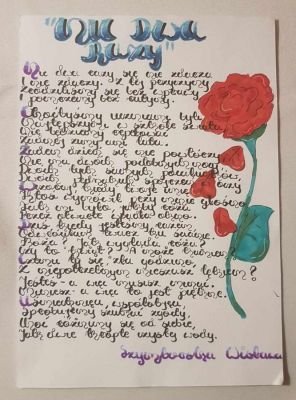 "Nic Dwa
Razy"
Nic dwa razy się nie zdarza
i nie zdarzy. Z tej przyczyny
zrodziliśmy się bez wprawy
i pomrzemy bez rutyny.
Choćbyśmy uczniami byli
najtępszymi w szkole świata,
nie będziemy repetować
żadnej zimy ani lata.
Żaden dzień się nie powtórzy,
nie ma dwóch podobnych nocy,
dwóch tych samych pocałunków,
dwóch jednakich spojrzeń w oczy.
Wczoraj, kiedy twoje imię
ktoś wymówił przy mnie głośno,
tak mi było, jakby róża
przez otwarte wpadła okno.
Dziś, kiedy jesteśmy razem,
odwróciłam twarz ku ścianie.
Róża? Jak wygląda róża?
Czy to kwiat? A może kamień?
Czemu ty się, zła godzino,
z niepotrzebnym mieszasz lękiem?
Jesteś - a więc musisz minąć.
Miniesz - a więc to jest piękne.
Uśmiechnięci, współobjęci,
spróbujemy szukać zgody,
choć różnimy się od siebie,
jak dwie krople czystej wody.
Szymborska Wisława